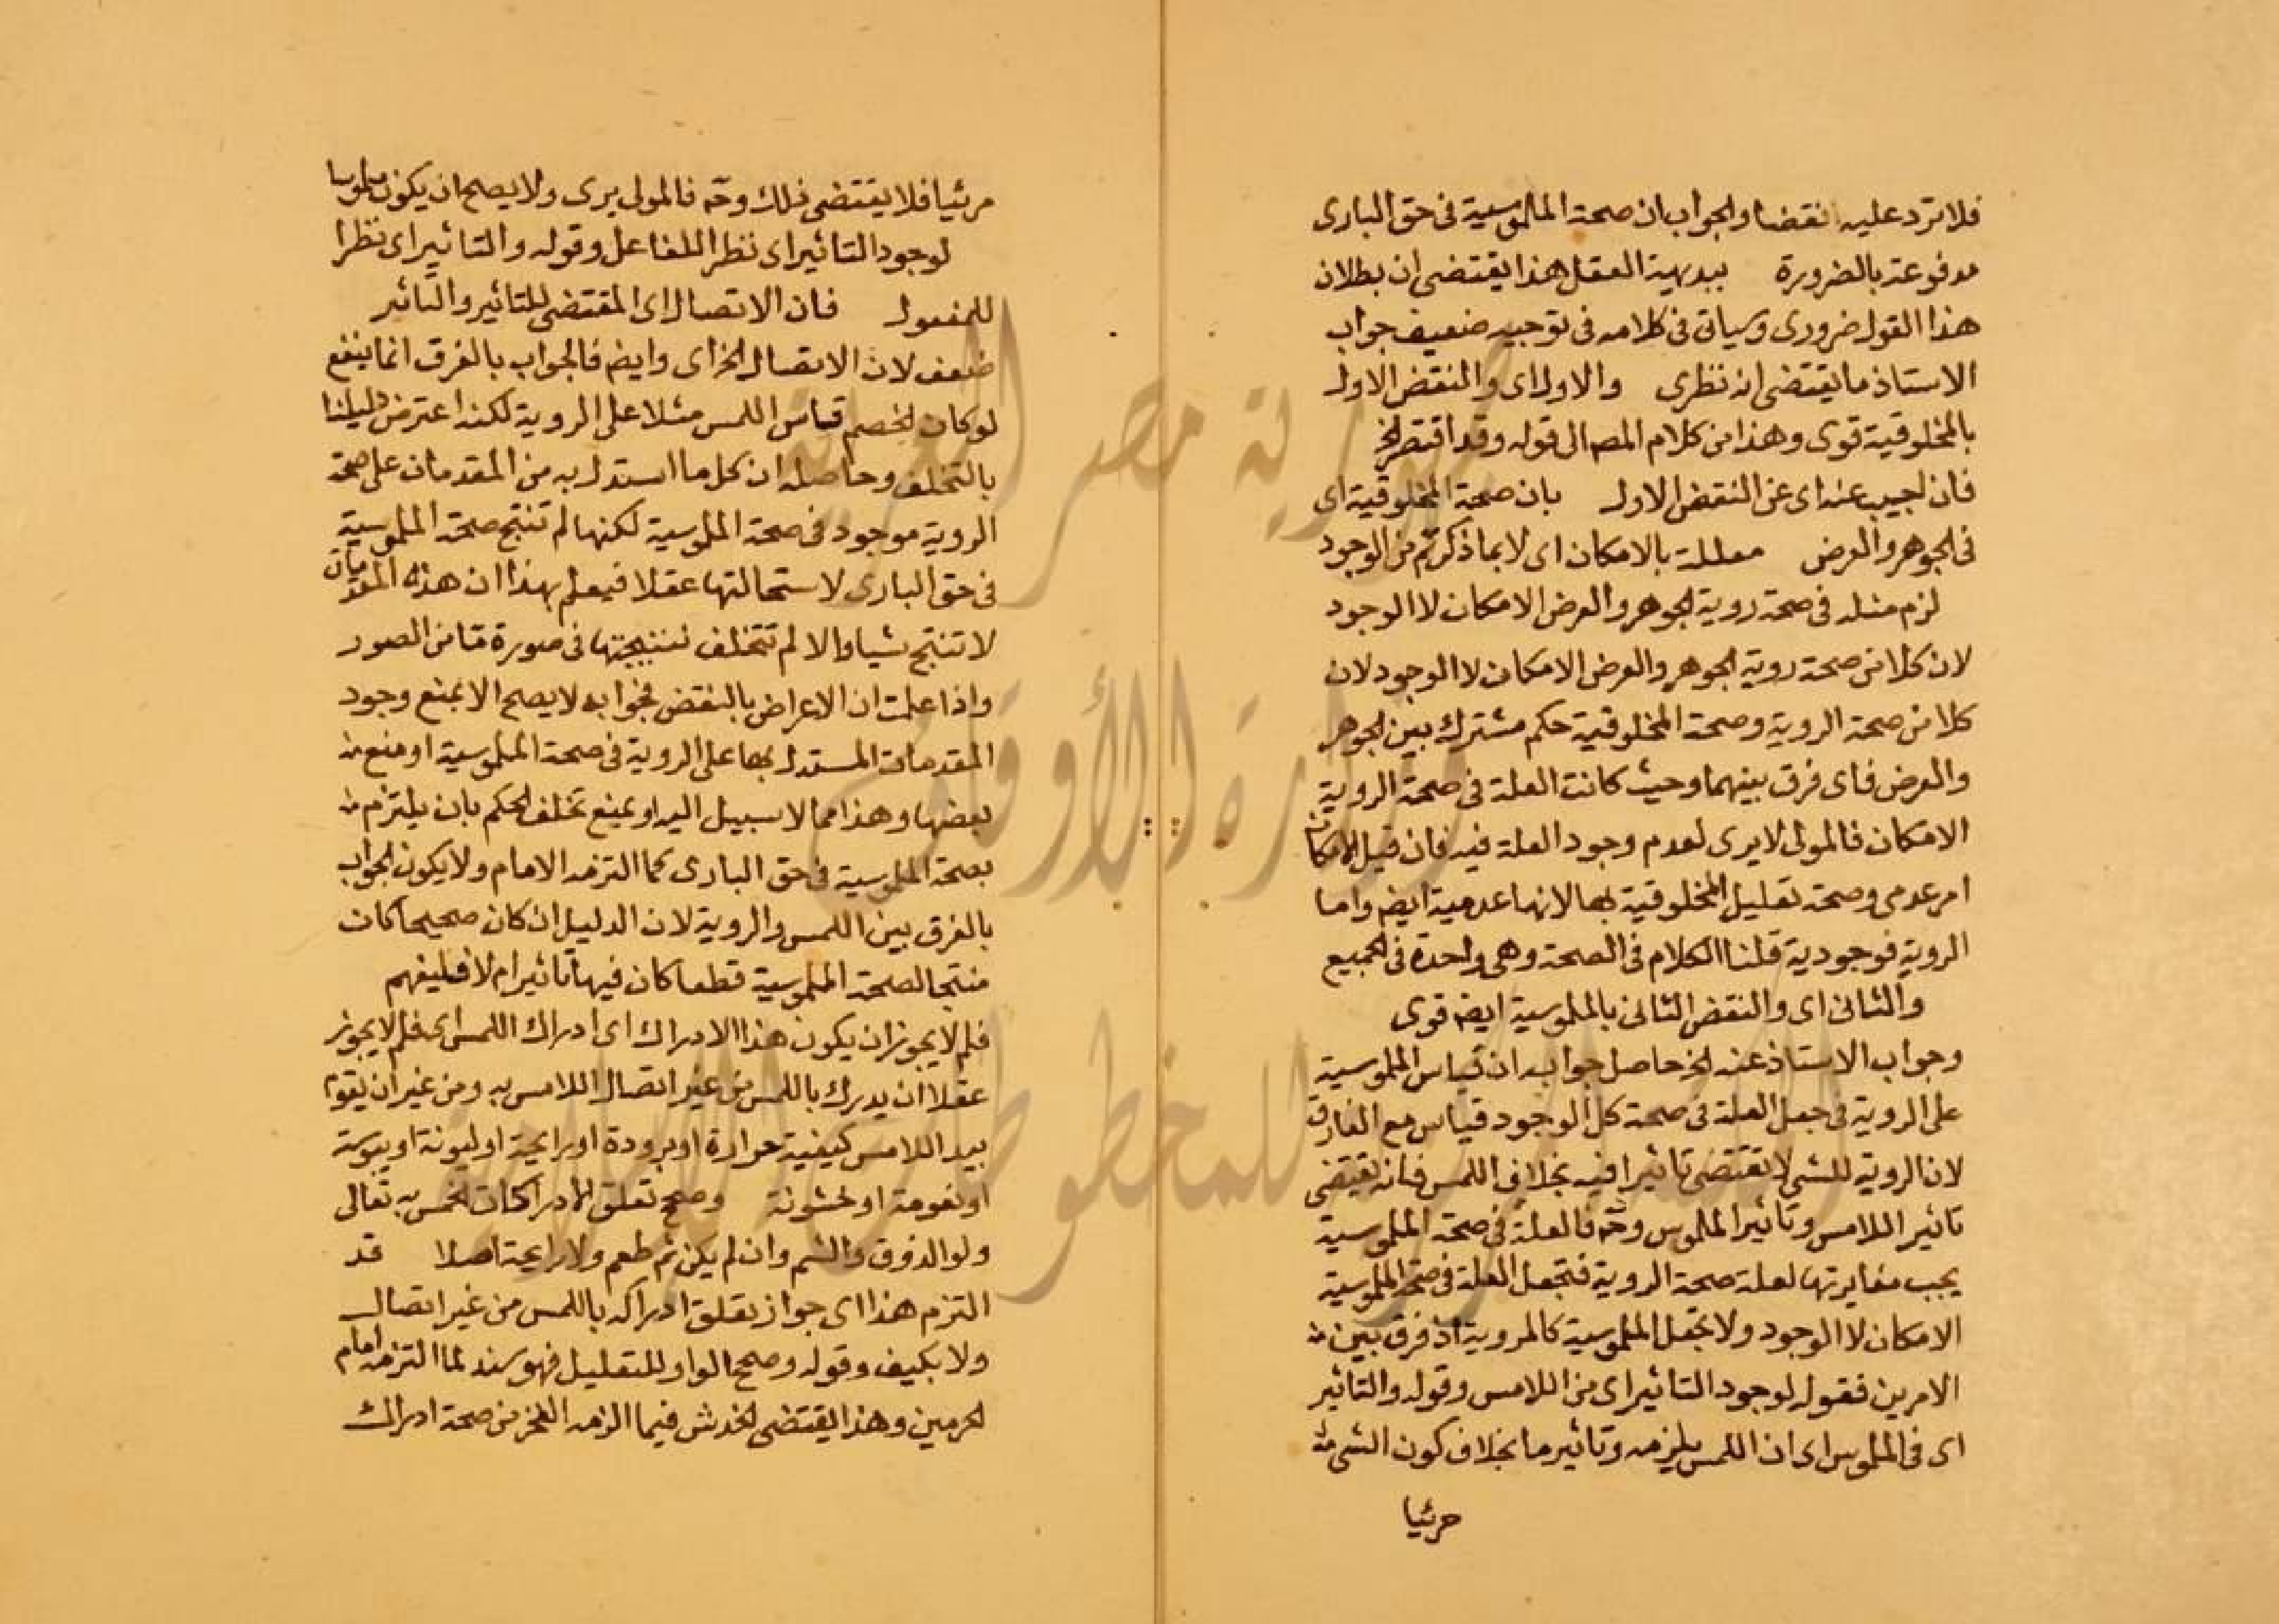 فلا ترد عليه نقضا والجواب ان صحة الملموسية فى حق البارى
مدفوعة بالضرورة ببديهية العقل هذا يقتضى ان بطلان
هذا القول ضرورى وسياتى فى كلامه فى توجيه ضعيف جواب
الاستاذ ما يقتضى انه نظرى والاول اى والنقض الاول
بالمخلوقية قوى وهذا من كلام المص الى قوله وقد اقتصر الخ
فان اجيب عنه اى عن النقض الاول بان صحة المخلوقية اى
فى الجوهر والعرض معللة بالامكان اى لا بما ذكرتم من الوجود
لزم مثله فى صحة روية الجوهر والعرض الامكان لا الوجود
لان كلا من صحة روية الجوهر والعرض الامكان لا الوجود لان
كلا من صحة الروية وصحة المخلوقية حكم مشترك بين الجوهر
والعرض فاى فرق بينهما وحيث كانت العلة فى صحة الروية
الامكان فالمولى لا يرى لعدم وجود العلة فيه فان قيل الامكان
امر عدمى وصحة تعليل المخلوقية بها لانها عدمية ايضم واما
الروية فوجودية قلنا الكلام فى الصحة وهى واحدة فى الجميع
والثانى اى والنقض الثانى بالملموسية ايضم قوى
وجواب الاستاذ عنه الخ حاصل جوابه ان قياس الملموسية
على الروية فى جعل العلة فى صحة كل الوجود قياس مع الفارق
لان الروية للشى لا تقتضى تاثيرا فيه بخلاف اللمس فانه يقتضى
تاثير اللامس وتاثير الملموس وحه فالعلة فى صحة الملموسية
يجب مغايرتها لعلة صحة الروية فتجعل العلة فى صحة الملموسية
الامكان لا الوجود ولا تجعل الملموسية كالمروية اذ فرق بين
الامرين فقوله لوجود التاثير اى من اللامس وقوله والتاثير
اى فى الملموس اى ان اللمس يلزمه وتاثير ما بخلاف كون الشى
مرئيا
مرئيا فلا يقتضى ذلك وحه فالمولى يرى ولا يصح ان يكون ملموسا
لوجود التاثير اى نظرا للفاعل وقوله والتاثير اى نظرا
للمفعول فان الاتصال اى المقتضى للتاثير والتاثر
ضعف لان الاتصال الخ اى وايضم فالجواب بالفرق انما ينفع
لو كان الخصم قياس اللمس مثلا على الروية لكنه اعترض دليلنا
بالتخلف وحاصله ان كل ما استدل به من المقدمات على صحة
الروية موجود فى صحة الملموسية لكنها لم تنتج صحة الملموسية
فى حق البارى لاستحالتها عقلا فيعلم بهذا ان هذه المقدمات
لا تنتج شيا والا لم تتخلف نتيجتها فى صورة ما من الصور
واذا علمت ان الاعراض بالنقض فجوابه لا يصح الا بمنع وجود
المقدمات المستدل بها على الروية فى صحة الملموسية او منع
بعضها وهذا مما لا سبيل اليه او بمنع تخلف الحكم بان يلتزم
بصحة الملموسية فى حق البارى كما التزمه الامام ولا يكون الجواب
بالفرق بين اللمس والروية لان الدليل ان كان صحيحا كان
منتجا لصحة الملموسية قطعا كان فيها تاثير ام لا فليفهم
فلم لا يجوز ان يكون هذا الادراك اى ادراك اللمس اى فلم لا يجوز
عقلا ان يدرك باللمس من غير اتصال اللامس به ومن غير ان يقوم
بيد اللامس كيفية حرارة او برودة او رايحة او ليونة او يبوسة
او نعومة او خشونة وصح تعلق الادراكات الخمس به تعالى
ولو الذوق والشم وان لم يكن ثم طعم ولا رايحة اصلا قد
التزم هذا اى جواز تعلق ادراكه باللمس من غير اتصال
ولا بكيف وقوله وصح الواو للتعليل فهو سند لما التزمه امام
الحرمين وهذا يقتضى الخدش فيما الزمه الفخر من صحة ادراك